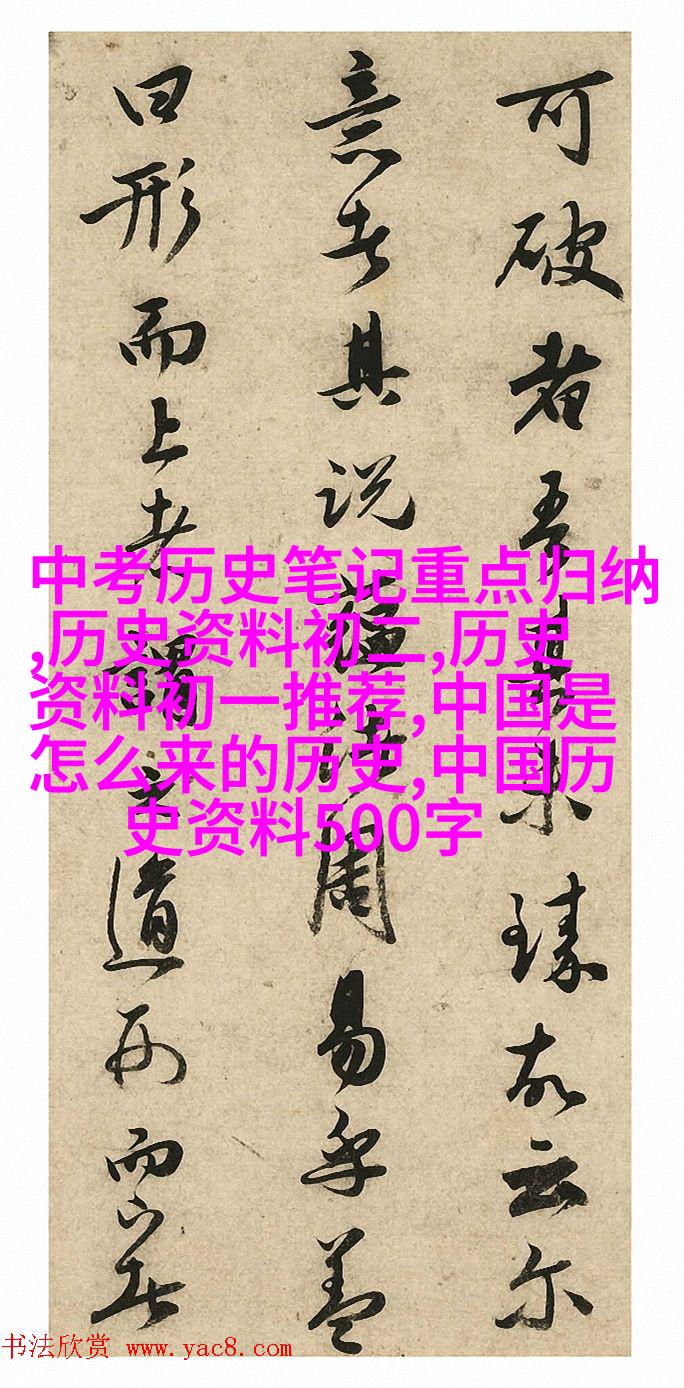 可破者吾未臻故云尔
意者其说蕴周易乎盖
曰形而上者谓之道形而下者
中考历史笔记重点归纳
,历史资料初二,历史
资料初一推荐,中国是
怎么来的历史,中国历
史资料500字
书法欣赏 www.yac8.com